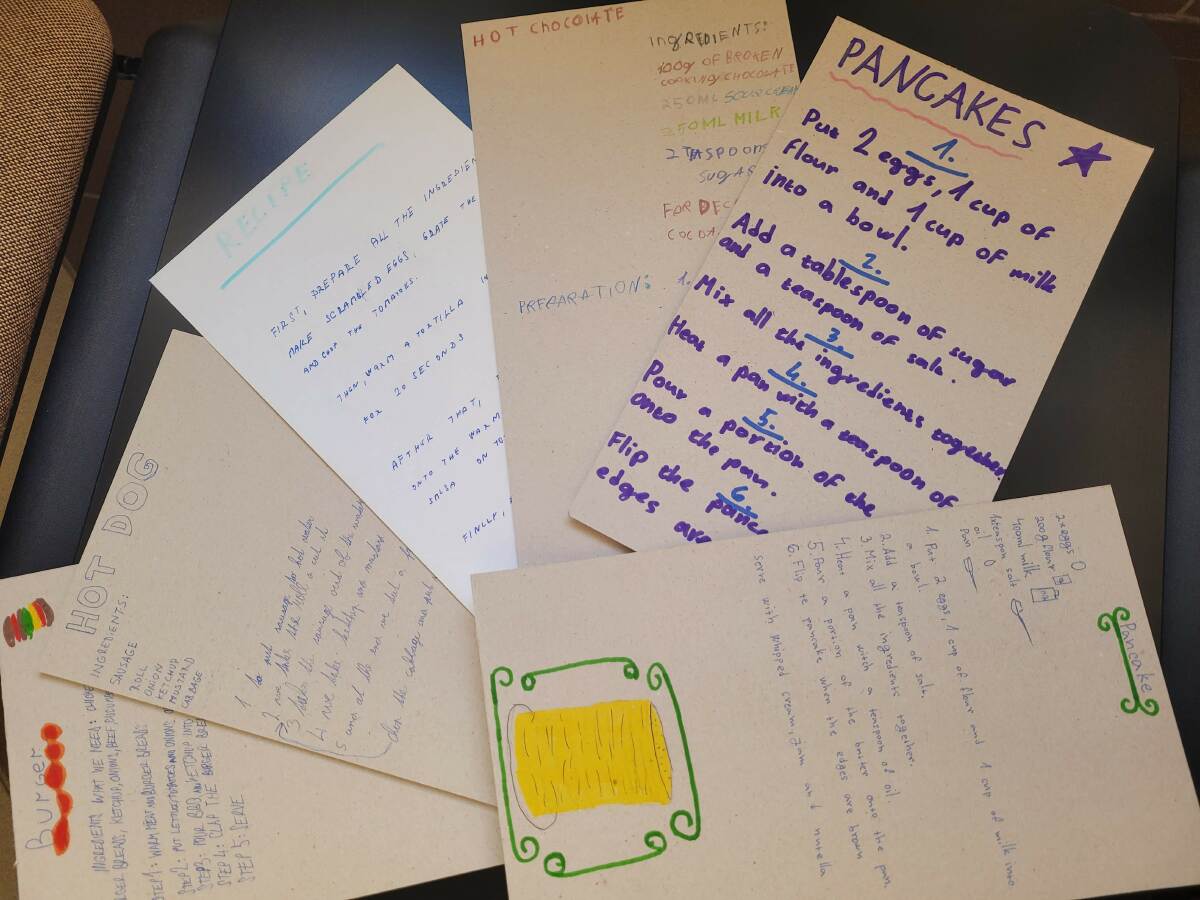 HOT CHOCOLATE
INGREDIENTS:
100g OF BROKEN
COOKING CHOCOLATE
250ML
250ML MILK
2 TEASPOONS
SUGAR
FOR DEC
COCOA
PREPARATION:
1.
PANCAKES
1.
Put 2 eggs, 1 cup of
flour and 1 cup of milk
into a bowl.
2.
Add a tablespoon of sugar
and a teaspoon of salt.
3.
Mix all the ingredients together.
4.
Heat a pan with a teaspoon of
5.
Pour a portion of the
onto the pan.
6.
Flip the panc
edges are
RECIPE
FIRST, PREPARE ALL THE INGREDIEN
MAKE SCRAMBLED EGGS, GRATE THE
AND CHOP THE TOMATOES.
THEN, WARM A TORTILLA IN
FOR 20 SECONDS
AFTHER THAT,
ONTO THE WARM
SALSA ON TO
FINLLY,
HOT DOG
INGREDIENTS:
SAUSAGE
ROLL
ONION
KETCHUP
MUSTARD
CABBAGE
1 to put sausage hot water
2 we take the roll a cut it
3 take the sausage out of the water
4 we take ketchup and mustard
5 and at the end we put a
then the cabbage and put
Burger
INGREDIENTS WHAT WE NEED:
RGER BREAD, KETCHUP, ONIONS, BEEF
STEP 1: WARM MEAT AND BURGER BREAD
STEP 2: PUT LETTUCE TOMATOES AND ONIONS
STEP 3: POUR BBQ AND KETCHUP INTO
STEP 4: CLAP THE BURGER BREA
STEP 5: SERVE
Pancake
2x eggs
200g flour
400ml milk
1 teaspon salt
oil
pan
1. Put 2 eggs, 1 cup of flour and 1 cup of milk into
a bowl.
2. Add a teaspon of salt.
3. Mix all the ingredients together.
4. Heat a pan with a teaspon of oil.
5. Pour a portion of the batter onto the pan.
6. Flip te pancake when the edges are brown
serve with whipped cream, jam and nutella